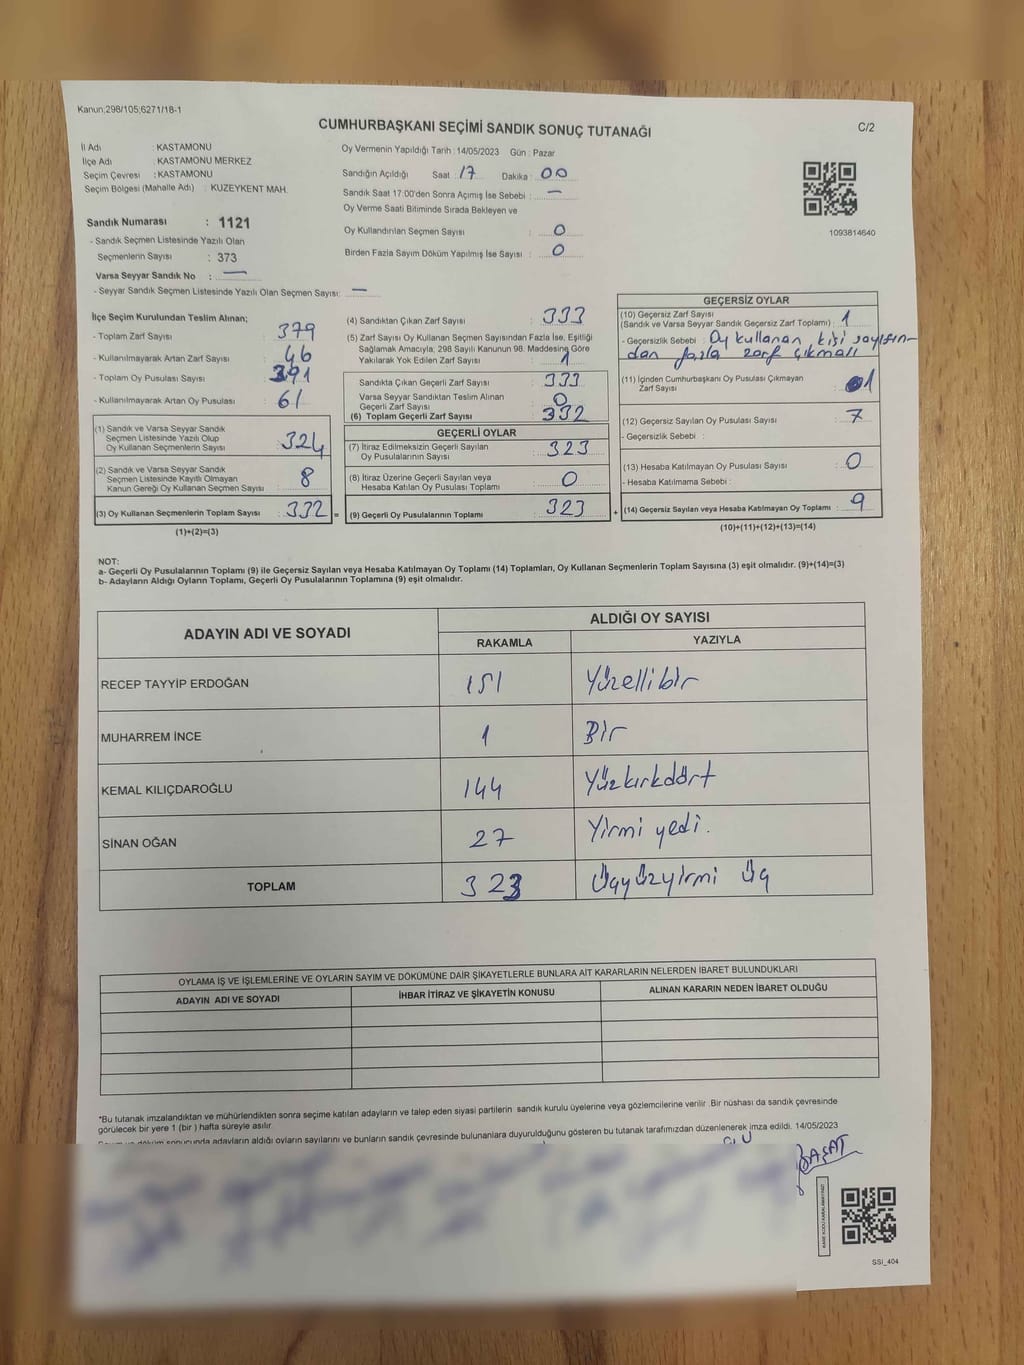 Kanun;298/105;6271/18-1
CUMHURBAŞKANI SEÇİMİ SANDIK SONUÇ TUTANAĞI
C/2
İl Adı : KASTAMONU
İlçe Adı : KASTAMONU MERKEZ
Seçim Çevresi : KASTAMONU
Seçim Bölgesi (Mahalle Adı) : KUZEYKENT MAH.
Sandık Numarası : 1121
- Sandık Seçmen Listesinde Yazılı Olan
Seçmenlerin Sayısı : 373
Varsa Seyyar Sandık No : —
- Seyyar Sandık Seçmen Listesinde Yazılı Olan Seçmen Sayısı: —
Oy Vermenin Yapıldığı Tarih : 14/05/2023 Gün : Pazar
Sandığın Açıldığı Saat : 17 Dakika : 00
Sandık Saat 17:00'den Sonra Açımış İse Sebebi : —
Oy Verme Saati Bitiminde Sırada Bekleyen ve
Oy Kullandırılan Seçmen Sayısı : 0
Birden Fazla Sayım Döküm Yapılmış İse Sayısı : 0
1093814640
İlçe Seçim Kurulundan Teslim Alınan;
- Toplam Zarf Sayısı : 379
- Kullanılmayarak Artan Zarf Sayısı : 46
- Toplam Oy Pusulası Sayısı : 391
- Kullanılmayarak Artan Oy Pusulası : 61
(1) Sandık ve Varsa Seyyar Sandık
Seçmen Listesinde Yazılı Olup
Oy Kullanan Seçmenlerin Sayısı : 324
(2) Sandık ve Varsa Seyyar Sandık
Seçmen Listesinde Kayıtlı Olmayan
Kanun Gereği Oy Kullanan Seçmen Sayısı : 8
(3) Oy Kullanan Seçmenlerin Toplam Sayısı : 332 =
(1)+(2)=(3)
(4) Sandıktan Çıkan Zarf Sayısı : 333
(5) Zarf Sayısı Oy Kullanan Seçmen Sayısından Fazla İse, Eşitliği
Sağlamak Amacıyla, 298 Sayılı Kanunun 98. Maddesine Göre
Yakılarak Yok Edilen Zarf Sayısı : 1
Sandıkta Çıkan Geçerli Zarf Sayısı : 333
Varsa Seyyar Sandıktan Teslim Alınan
Geçerli Zarf Sayısı : 0
(6) Toplam Geçerli Zarf Sayısı : 332
GEÇERLİ OYLAR
(7) İtiraz Edilmeksizin Geçerli Sayılan
Oy Pusulalarının Sayısı : 323
(8) İtiraz Üzerine Geçerli Sayılan veya
Hesaba Katılan Oy Pusulası Toplamı : 0
(9) Geçerli Oy Pusulalarının Toplamı : 323 +
GEÇERSİZ OYLAR
(10) Geçersiz Zarf Sayısı
(Sandık ve Varsa Seyyar Sandık Geçersiz Zarf Toplamı) : 1
- Geçersizlik Sebebi : Oy kullanan kişi sayısın-
dan fazla zarf çıkması
(11) İçinden Cumhurbaşkanı Oy Pusulası Çıkmayan
Zarf Sayısı : 1
(12) Geçersiz Sayılan Oy Pusulası Sayısı : 7
- Geçersizlik Sebebi :
(13) Hesaba Katılmayan Oy Pusulası Sayısı : 0
- Hesaba Katılmama Sebebi :
(14) Geçersiz Sayılan veya Hesaba Katılmayan Oy Toplamı : 9
(10)+(11)+(12)+(13)=(14)
NOT:
a- Geçerli Oy Pusulalarının Toplamı (9) ile Geçersiz Sayılan veya Hesaba Katılmayan Oy Toplamı (14) Toplamları, Oy Kullanan Seçmenlerin Toplam Sayısına (3) eşit olmalıdır. (9)+(14)=(3)
b- Adayların Aldığı Oyların Toplamı, Geçerli Oy Pusulalarının Toplamına (9) eşit olmalıdır.
ADAYIN ADI VE SOYADI ALDIĞI OY SAYISI
RAKAMLA YAZIYLA
RECEP TAYYİP ERDOĞAN 151 Yüzellibir
MUHARREM İNCE 1 Bir
KEMAL KILIÇDAROĞLU 144 Yüzkırkdört
SİNAN OĞAN 27 Yirmi yedi.
TOPLAM 323 Üçyüzyirmi üç
OYLAMA İŞ VE İŞLEMLERİNE VE OYLARIN SAYIM VE DÖKÜMÜNE DAİR ŞİKAYETLERLE BUNLARA AİT KARARLARIN NELERDEN İBARET BULUNDUKLARI
ADAYIN ADI VE SOYADI İHBAR İTİRAZ VE ŞİKAYETİN KONUSU ALINAN KARARIN NEDEN İBARET OLDUĞU
*Bu tutanak imzalandıktan ve mühürlendikten sonra seçime katılan adayların ve talep eden siyasi partilerin sandık kurulu üyelerine veya gözlemcilerine verilir .Bir nüshası da sandık çevresinde
görülecek bir yere 1 (bir ) hafta süreyle asılır.
sonucunda adayların aldığı oyların sayılarını ve bunların sandık çevresinde bulunanlara duyurulduğunu gösteren bu tutanak tarafımızdan düzenlenerek imza edildi. 14/05/2023
SSİ_404